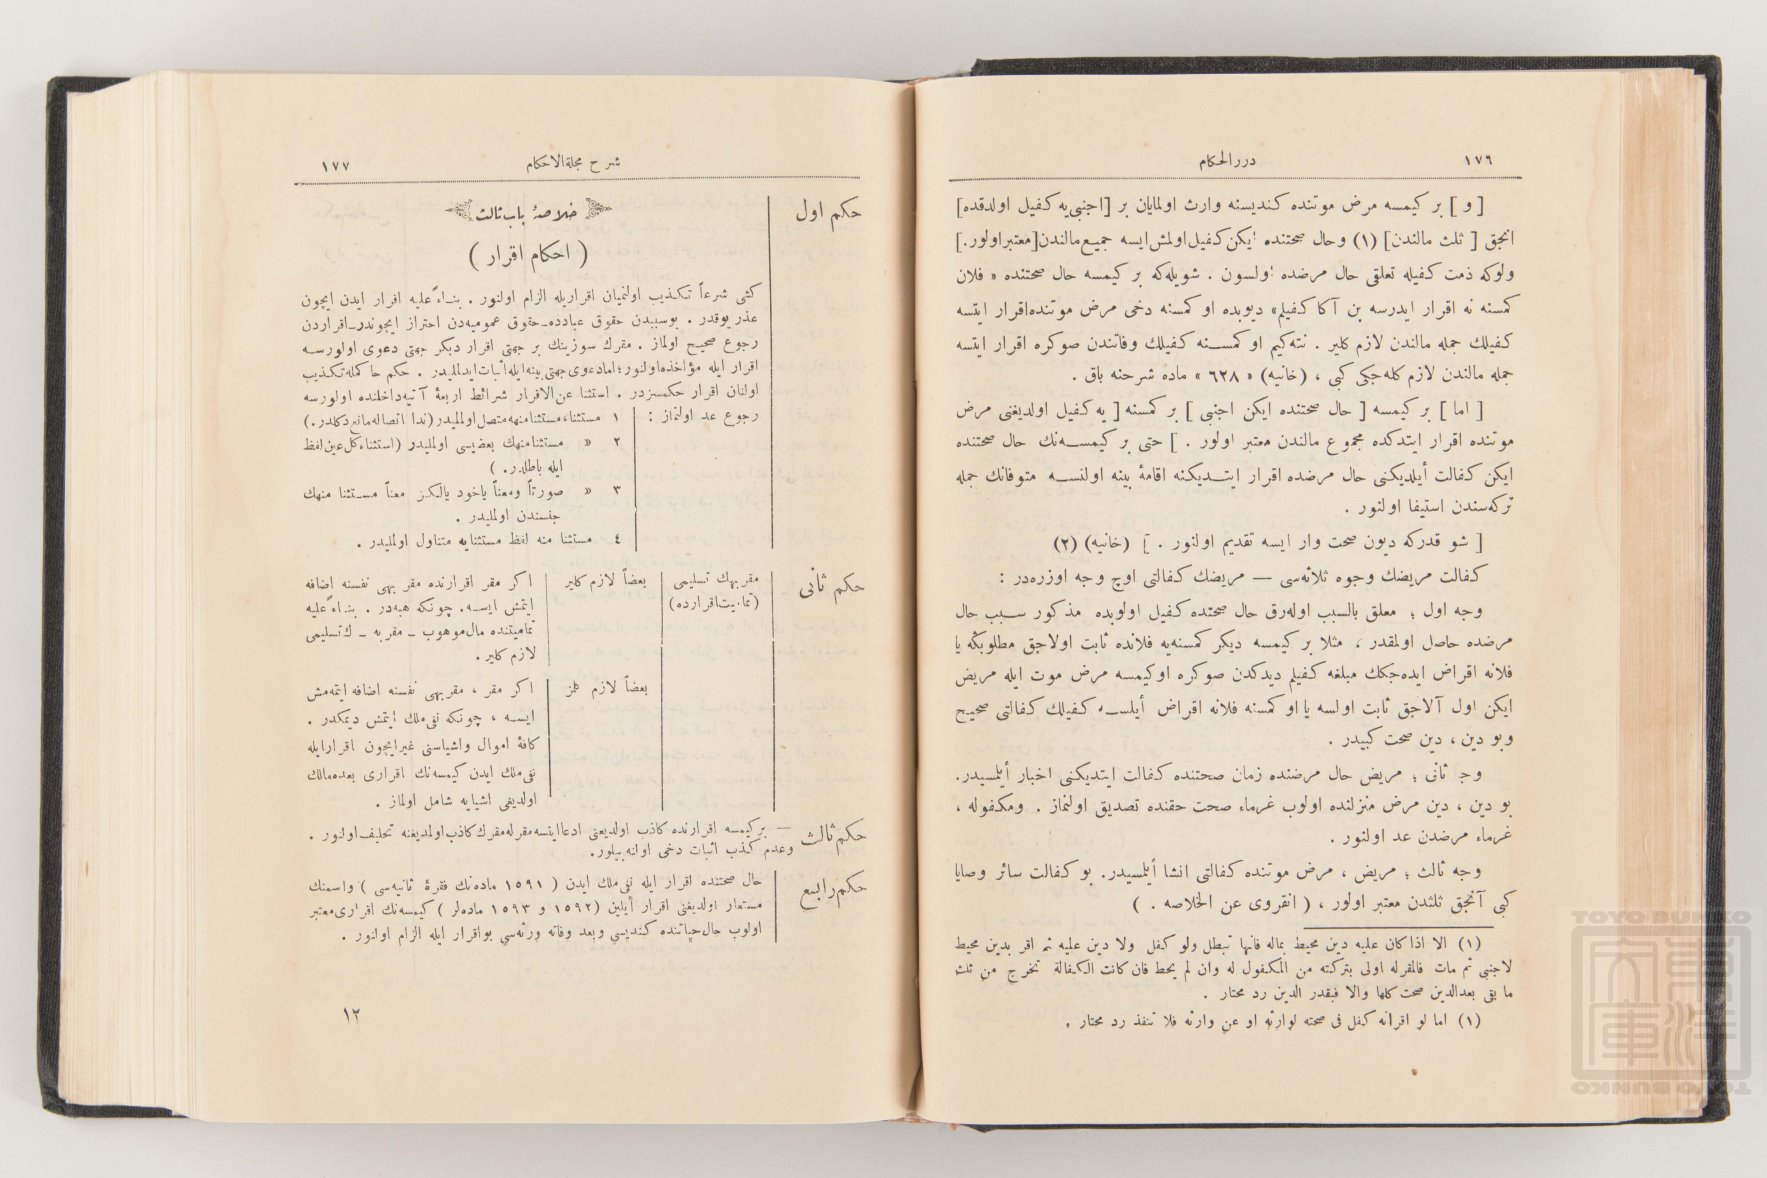 ١٧٦
درر الحكام
[ و ] بر كيمسه مرض موتنده كنديسنه وارث اولمايان بر [ اجنبى‌يه كفيل اولدقده ]
انجق [ ثلث مالندن ] (١) وحال صحتنده ايكن كفيل اولمش ايسه جميع مالندن [ معتبر اولور . ]
ولوكه ذمت كفيله تعلقى حال مرضده اولسون . شويله‌كه بر كيمسه حال صحتنده « فلان
كمسنه نه اقرار ايدرسه بن آكا كفيلم » ديوبده او كمسنه دخى مرض موتنده اقرار ايتسه
كفيلك جمله مالندن لازم كلير . نته‌كيم او كمسنه كفيلك وفاتندن صوكره اقرار ايتسه
جمله مالندن لازم كله‌جكى كبى ، (خانيه) « ٦٢٨ » ماده شرحنه باق .
[ اما ] بر كيمسه [ حال صحتنده ايكن اجنبى ] بر كمسنه [ يه كفيل اولديغنى مرض
موتنده اقرار ايتدكده مجموع مالندن معتبر اولور . ] حتى بر كيمسه‌نك حال صحتنده
ايكن كفالت أيلديكنى حال مرضده اقرار ايتديكنه اقامهٔ بينه اولنسه متوفانك جمله
تركه‌سندن استيفا اولنور .
[ شو قدركه ديون صحت وار ايسه تقديم اولنور . ] (خانيه) (٢)
كفالت مريضك وجوه ثلاثه‌سى — مريضك كفالتى اوچ وجه اوزره‌در :
وجه اول ؛ معلق بالسبب اوله‌رق حال صحتده كفيل اولوبده مذكور سبب حال
مرضده حاصل اولمقدر ، مثلا بر كيمسه ديكر كمسنه‌يه فلانده ثابت اولاجق مطلوبكه يا
فلانه اقراض ايده‌جكك مبلغه كفيلم ديدكدن صوكره او كيمسه مرض موت ايله مريض
ايكن اول آلاجق ثابت اولسه يا او كمسنه فلانه اقراض أيلسه كفيلك كفالتى صحيح
وبو دين ، دين صحت كبيدر .
وجه ثانى ؛ مريض حال مرضنده زمان صحتنده كفالت ايتديكنى اخبار أيلمسيدر.
بو دين ، دين مرض منزلنده اولوب غرماء صحت حقنده تصديق اولنماز . ومكفوله ،
غرماء مرضدن عد اولنور .
وجه ثالث ؛ مريض ، مرض موتنده كفالتى انشا أيلمسيدر. بو كفالت سائر وصايا
كبى آنجق ثلثدن معتبر اولور ، ( انقروى عن الخلاصه . )
(١) الا اذا كان عليه دين محيط بماله فانها تبطل ولو كفل ولا دين عليه ثم اقر بدين محيط
لاجنبى ثم مات فالمقرله اولى بتركته من المكفول له وان لم يحط فان كانت الكفالة تخرج من ثلث
ما بقى بعد الدين صحت كلها والا فبقدر الدين رد محتار .
(١) اما لو اقر انه كفل فى صحته لوارثه او عن وارثه فلا تنفذ رد محتار .
شرح مجلة الاحكام
١٧٧
حكم اول
خلاصهٔ باب ثالث
( احكام اقرار )
كشى شرعاً تكذيب اولنميان اقراريله الزام اولنور . بناءً عليه اقرار ايدن ايچون
عذر يوقدر . بوسببدن حقوق عبادده ـ حقوق عموميه‌دن احتراز ايچوندر ـ اقراردن
رجوع صحيح اولماز . مقرك سوزينك بر جهتى اقرار ديكر جهتى دعوى اولورسه
اقرار ايله مؤاخذه اولنور؛ اما دعوى جهتى بينه ايله اثبات ايدلمليدر . حكم حاكمله تكذيب
اولنان اقرار حكمسزدر . استثنا عن الاقرار شرائط اربعهٔ آتيه داخلنده اولورسه
رجوع عد اولنماز :
١ مستثنا، مستثنا منهه متصل اولمليدر (ندا اتصاله مانع دكلدر.)
٢ « مستثنا منهك بعضيسى اولمليدر (استثناء كل عين لفظ
ايله باطلدر. )
٣ « صورتاً ومعناً ياخود يالكز معناً مستثنا منهك
جنسندن اولمليدر .
٤ مستثنا منه لفظ مستثنايه متناول اولمليدر .
حكم ثانى
مقر بهك تسليمى
(تماميت اقرارده)
بعضاً لازم كلير
اكر مقر اقرارنده مقر بهى نفسنه اضافه
ايتمش ايسه. چونكه هبه‌در . بناءً عليه
تماميتنده مال موهوب ـ مقر به ـ ك تسليمى
لازم كلير .
بعضاً لازم كلمز
اكر مقر ، مقر بهى نفسنه اضافه ايتمه‌مش
ايسه ، چونكه نفى ملك ايتمش ديمكدر .
كافهٔ اموال واشياسنى غير ايچون اقرار ايله
نفى ملك ايدن كيمسه‌نك اقرارى بعده مالك
اولديغى اشيايه شامل اولماز .
حكم ثالث
— بر كيمسه اقرارنده كاذب اولديغنى ادعا ايتسه مقر له مقرك كاذب اولمديغنه تحليف اولنور .
وعدم كذب اثبات دخى اولنه‌بيلور .
حكم رابع
حال صحتنده اقرار ايله نفى ملك ايدن ( ١٥٩١ ماده‌نك فقرهٔ ثانيه‌سى ) واسمنك
مستعار اولديغنى اقرار أيلين (١٥٩٢ و ١٥٩٣ ماده‌لر ) كيمسه‌نك اقرارى معتبر
اولوب حال حياتنده كنديسى وبعد وفاته ورثه‌سى بو اقرار ايله الزام اولنور .
١٢
TOYO BUNKO
TOYO BUNKO